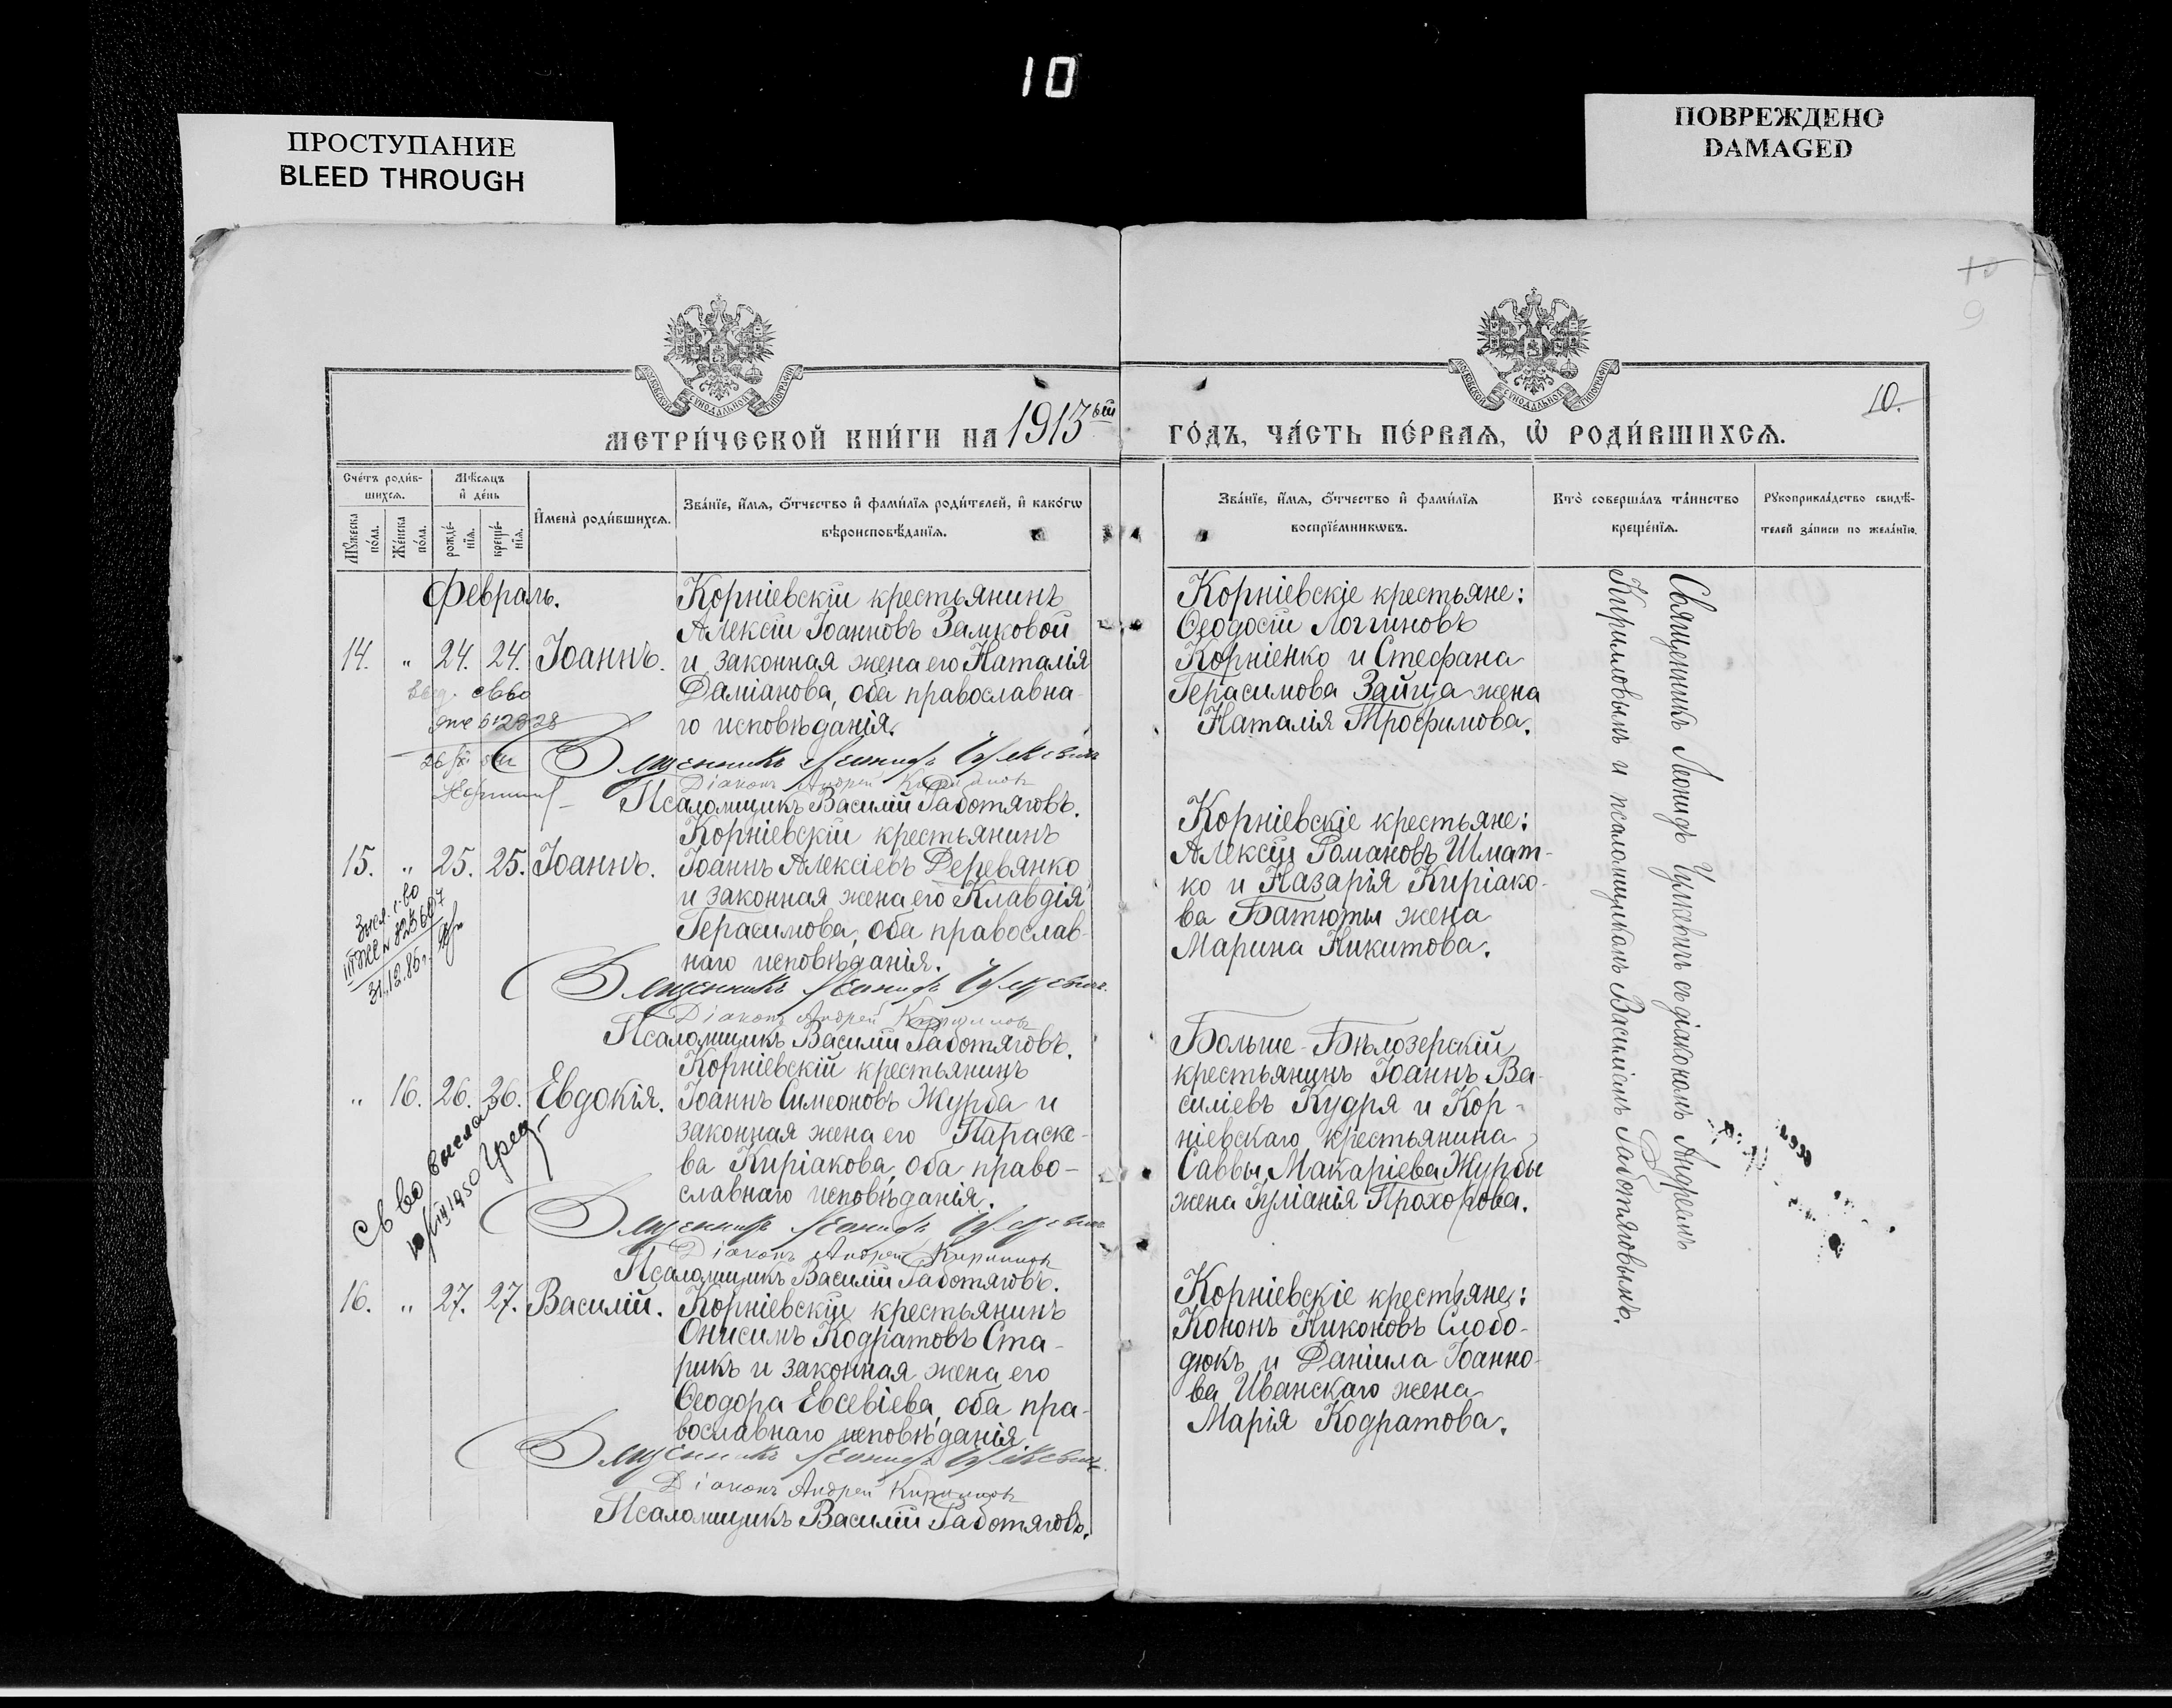 10
ПРОСТУПАНИЕ
BLEED THROUGH
ПОВРЕЖДЕНО
DAMAGED
9
МОСКОВСКОЙ СѴНОДАЛЬНОЙ ТИПОГРАФІИ
МОСКОВСКОЙ СѴНОДАЛЬНОЙ ТИПОГРАФІИ
10.
МЕТРИ́ЧЕСКОЙ КНИ́ГИ НА 1913ый
ГО́ДЪ, ЧА́СТЬ ПЕ́РВАѦ, Ѡ РОДИ́ВШИХСѦ.
Сче́тъ роди́в-
шихсѧ.
Мꙋ́жеска
по́ла.
Же́нска
по́ла.
Мѣ́сѧцъ
и҆ де́нь
рожде́-
нїѧ.
креще́-
нїѧ.
И҆мена̀ роди́вшихсѧ.
Зва́нїе, и҆́мѧ, ѻ҆́тчество и҆ фами́лїѧ роди́телей, и҆ како́гѡ
вѣроисповѣ́данїѧ.
Зва́нїе, и҆́мѧ, ѻ҆́тчество и҆ фами́лїѧ
воспрїе́мникѡвъ.
Кто̀ соверша́лъ та́инство
креще́нїѧ.
Рꙋкоприкла́дство свидѣ́-
телей за́писи по жела́нїю.
Февраль.
14. „ 24. 24. Іоаннъ.
Корніевскій крестьянинъ
Алексій Іоанновъ Замковой
и законная жена его Наталія
Даміанова, оба православна-
го исповѣданія.
Священникъ Леонидъ
Діаконъ Андрей Кирилловъ
Псаломщикъ Василій Работяговъ.
Корніевскіе крестьяне:
Ѳеодосій Логгиновъ
Корніенко и Стефана
Герасимова Зайца жена
Наталія Трофимова.
15. „ 25. 25. Іоаннъ.
31.12.85г.
Корніевскій крестьянинъ
Іоаннъ Алексіевъ Деревянко
и законная жена его Клавдія
Герасимова, оба православ-
наго исповѣданія.
Священникъ Леонидъ
Діаконъ Андрей Кирилловъ
Псаломщикъ Василій Работяговъ.
Корніевскіе крестьяне:
Алексій Романовъ Шмат-
ко и Назарія Киріако-
ва Батюты жена
Марина Никитова.
„ 16. 26. 26. Евдокія.
Св во выслано
Корніевскій крестьянинъ
Іоаннъ Симеоновъ Журба и
законная жена его Параске-
ва Киріакова, оба право-
славнаго исповѣданія.
Священникъ Леонидъ
Діаконъ Андрей Кирилловъ
Псаломщикъ Василій Работяговъ.
Больше-Бѣлозерскій
крестьянинъ Іоаннъ Ва-
силіевъ Кудря и Кор-
ніевскаго крестьянина
Саввы Макаріева Журбы
жена Іуліанія Прохорова.
16. „ 27. 27. Василій.
Корніевскій крестьянинъ
Онисимъ Кодратовъ Ста-
рикъ и законная жена его
Ѳеодора Евсевіева, оба пра-
вославнаго исповѣданія
Священникъ Леонидъ
Діаконъ Андрей Кирилловъ
Псаломщикъ Василій Работяговъ.
Корніевскіе крестьяне:
Кононъ Никоновъ Слобо-
дюкъ и Даніила Іоанно-
ва Иванскаго жена
Марія Кодратова.
Священникъ Леонидъ съ діакономъ Андреемъ
Кирилловымъ и псаломщикомъ Василіемъ Работяговымъ.